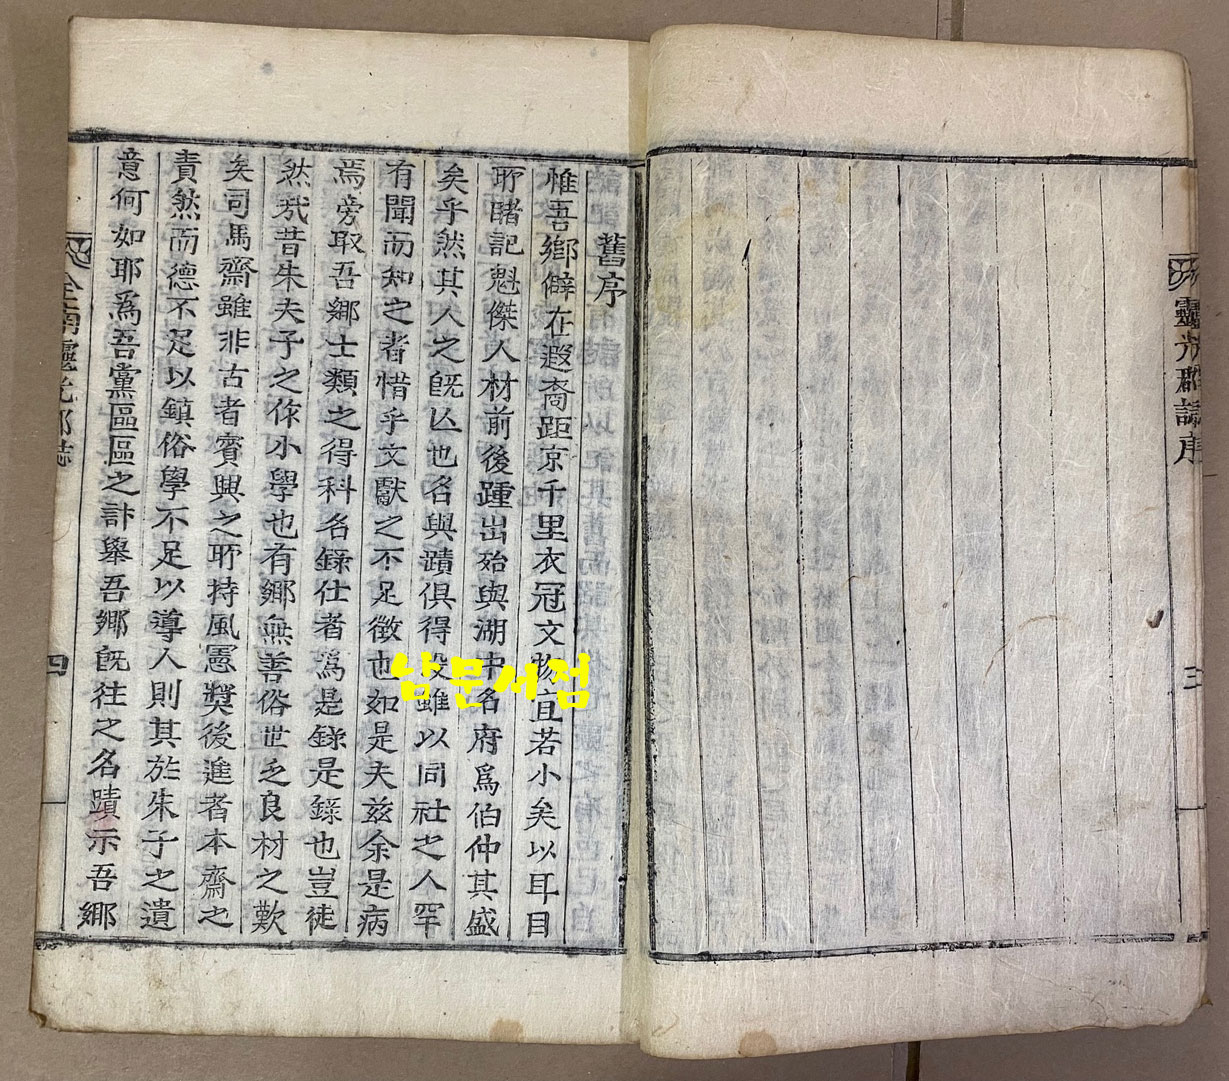 靈光郡誌序
三
舊序
惟吾鄉僻在遐裔距京千里衣冠文物宜若小矣以耳目
所睹記魁傑人材前後踵出殆與湖中名府爲伯仲其盛
矣乎然其人之旣亾也名與蹟俱得沒雖以同社之人罕
有聞而知之者惜乎文獻之不足徵也如是夫兹余是病
焉旁取吾鄉士類之得科名錄仕者爲是錄是錄也豈徒
然哉昔朱夫子之作小學也有鄉無善俗世乏良材之歎
矣司馬齋雖非古者賓興之所持風憲奬後進者本齋之
責然而德不足以鎮俗學不足以導人則其於朱子之遺
意何如耶爲吾黨區區之計擧吾鄉旣往之名蹟示吾鄉
全南靈光郡誌
四
남문서점